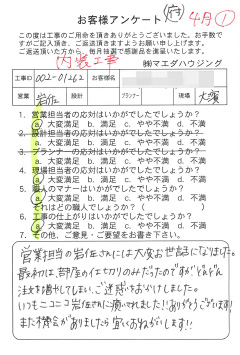 お客様アンケート 府 4月①
この度は工事のご用命を頂きありがとうございました。お手数で
すがご記入頂き、ご返送頂きますようお願い申し上げます。
ご返送頂いた方から、毎月抽選で感謝品を進呈いたします。
内装工事 ㈱マエダハウジング
工事ID 002-01262 お客様名
営業 岩佐 設計 プランナー 現場 大濱
1. 営業担当者の応対はいかがでしたでしょうか?
a. 大変満足 b. 満足 c. やや不満 d. 不満
2. 設計担当者の応対はいかがでしたでしょうか?
a. 大変満足 b. 満足 c. やや不満 d. 不満
3. プランナーの応対はいかがでしたでしょうか?
a. 大変満足 b. 満足 c. やや不満 d. 不満
4. 現場担当者の応対はいかがでしたでしょうか?
a. 大変満足 b. 満足 c. やや不満 d. 不満
5. 職人のマナーはいかがでしたでしょうか?
a. 大変満足 b. 満足 c. やや不満 d. 不満
それはどの職人でしょうか?( )
6. 工事の仕上がりはいかがでしたでしょうか?
a. 大変満足 b. 満足 c. やや不満 d. 不満
7. その他、ご意見・ご要望をお書き下さい
営業担当の岩佐さんには大変お世話になりました。
最初は、部屋の仕切りのみだったのですがどんどん
注文を増やしてしまい、ご迷惑をおかけしました。
いつもニコニコ岩佐さんに癒されました!!ありがとうございます!
また機会がありましたら宜しくおねがいします!!